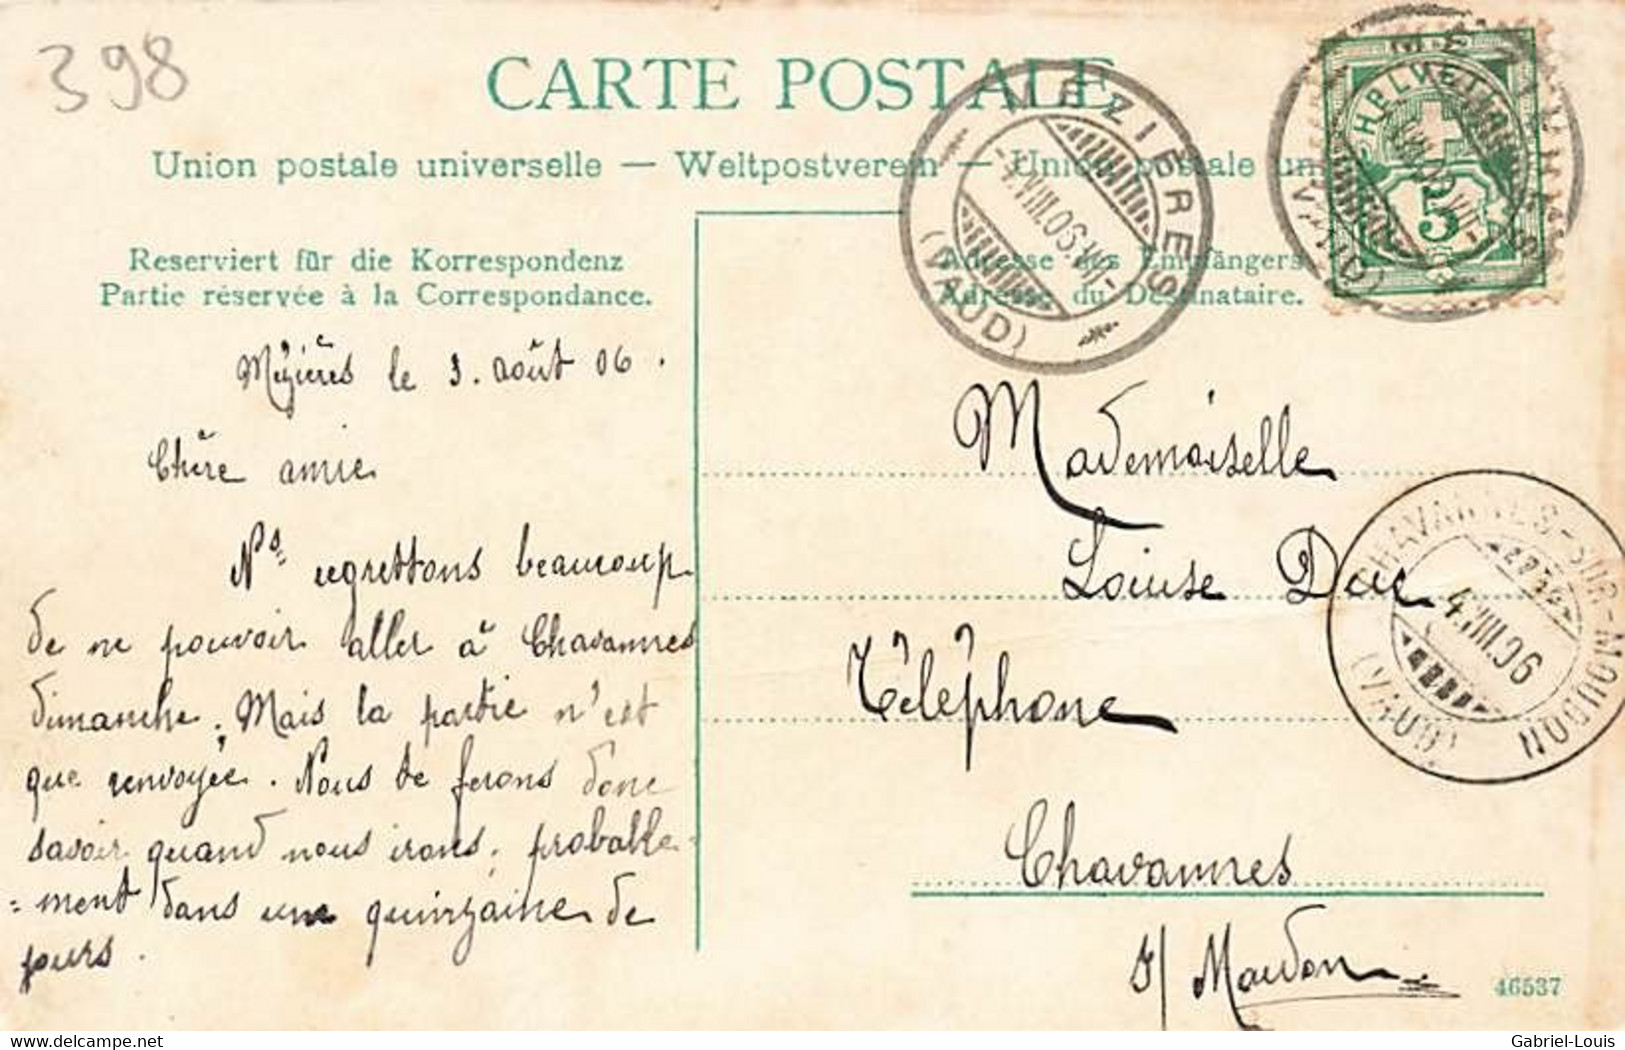 398
CARTE POSTALE
Union postale universelle — Weltpostverein — Union postale un
Reserviert für die Korrespondenz
Partie réservée à la Correspondance.
Adresse des Empfängers
Adresse du Destinataire.
MÉZIÈRES
(VAUD)
-4.VIII.06.VIII-
MÉZIÈRES
(VAUD)
HELVETIA
5
CHAVANNES-SUR-MOUDON
(VAUD)
4.VIII.06
Mézières le 3. août 06.
Chère amie
Ns. regrettons beaucoup
de ne pouvoir aller à Chavannes
dimanche. Mais la partie n'est
que renvoyée. Nous te ferons donc
savoir quand nous irons, probable-
-ment dans une quinzaine de
jours.
Mademoiselle
Louise Duc
Téléphone
Chavannes
s/ Moudon
46537
www.delcampe.net
Gabriel-Louis